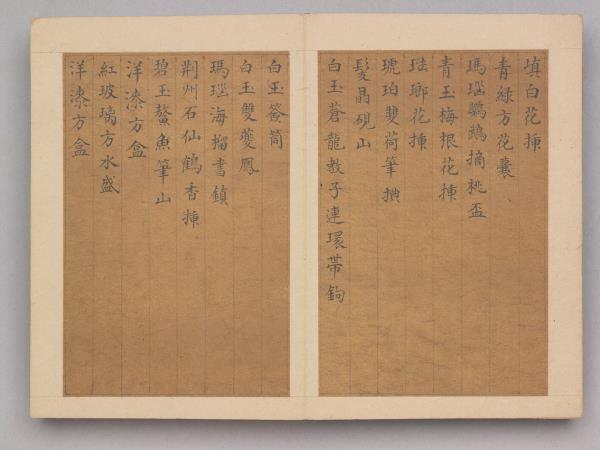 填白花挿
青綠方花囊
瑪瑙鸚鵡摘桃盃
青玉梅根花挿
琺瑯花挿
琥珀雙荷筆掭
髮晶硯山
白玉蒼龍教子連環帶鉤
白玉簽筒
白玉雙夔鳳
瑪瑙海榴書鎮
荆州石仙鶴香挿
碧玉鰲魚筆山
洋漆方盒
紅玻璃方水盛
洋漆方盒